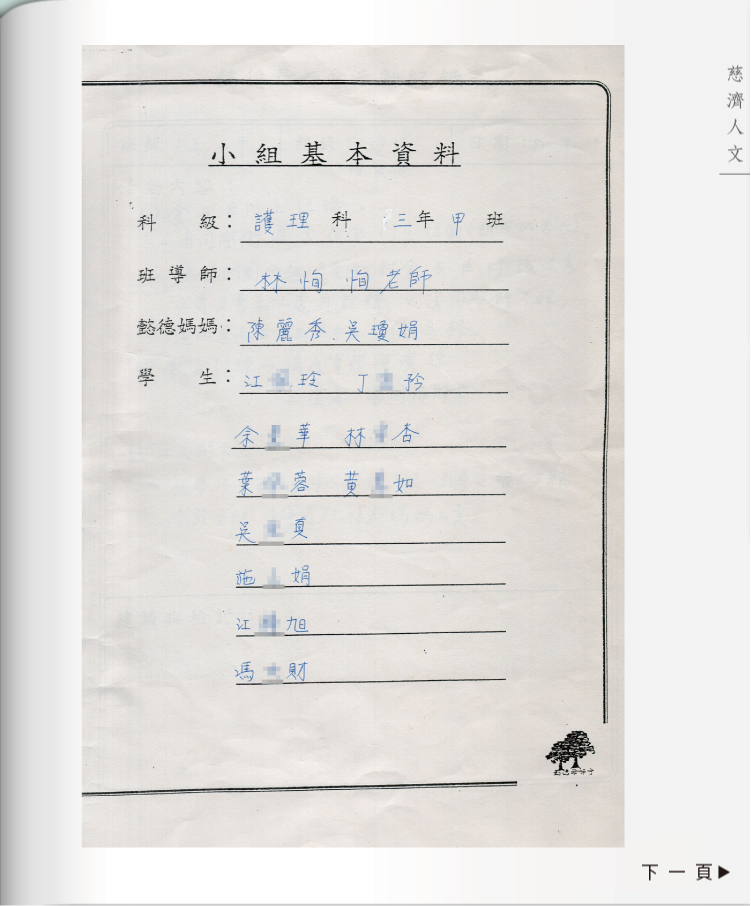 慈濟人文
小組基本資料
科級：護理科 三年甲班
班導師：林恂恂老師
懿德媽媽：陳麗秀.吳瓊娟
學生：江 玲 丁 矜
余 華 林 杏
葉 蓉 黃 如
吳 真
施 娟
江 旭
馮 財
下一頁▶